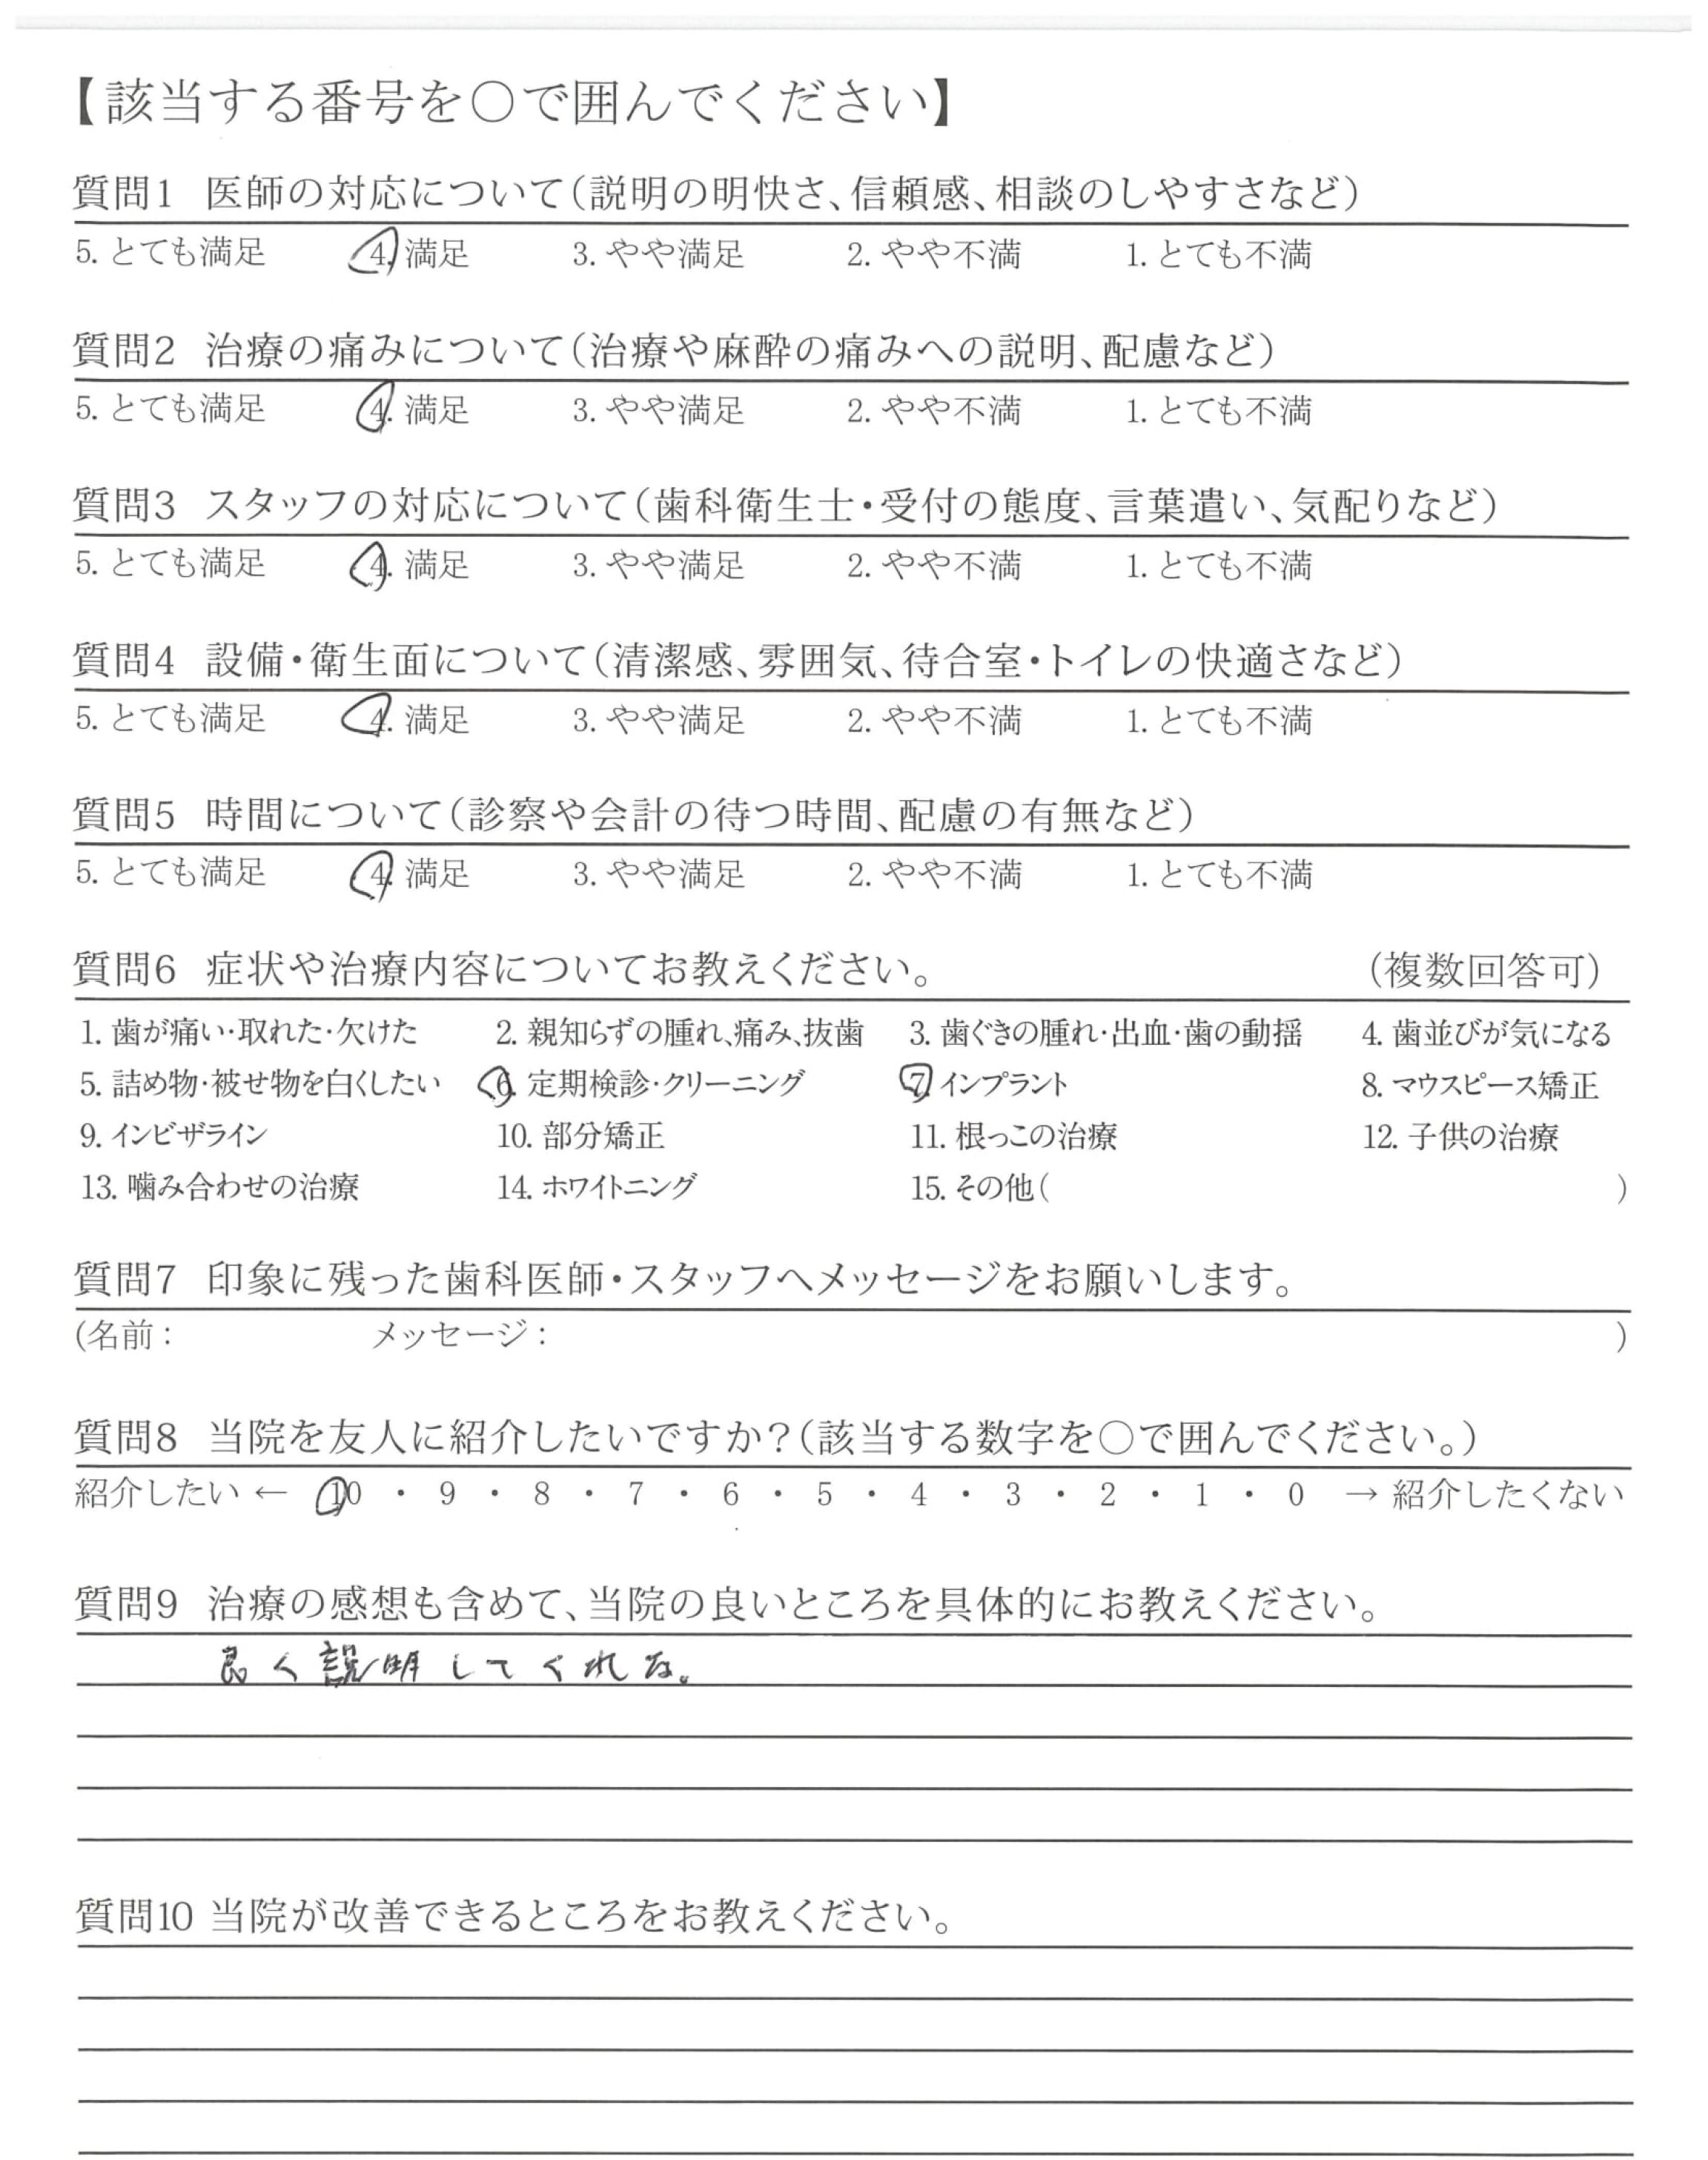 【該当する番号を○で囲んでください】
質問1 医師の対応について(説明の明快さ、信頼感、相談のしやすさなど)
5. とても満足 4. 満足 3. やや満足 2. やや不満 1. とても不満
質問2 治療の痛みについて(治療や麻酔の痛みへの説明、配慮など)
5. とても満足 4. 満足 3. やや満足 2. やや不満 1. とても不満
質問3 スタッフの対応について(歯科衛生士・受付の態度、言葉遣い、気配りなど)
5. とても満足 4. 満足 3. やや満足 2. やや不満 1. とても不満
質問4 設備・衛生面について(清潔感、雰囲気、待合室・トイレの快適さなど)
5. とても満足 4. 満足 3. やや満足 2. やや不満 1. とても不満
質問5 時間について(診察や会計の待つ時間、配慮の有無など)
5. とても満足 4. 満足 3. やや満足 2. やや不満 1. とても不満
質問6 症状や治療内容についてお教えください。 (複数回答可)
1. 歯が痛い・取れた・欠けた 2. 親知らずの腫れ、痛み、抜歯 3. 歯ぐきの腫れ・出血・歯の動揺 4. 歯並びが気になる
5. 詰め物・被せ物を白くしたい 6. 定期検診・クリーニング 7. インプラント 8. マウスピース矯正
9. インビザライン 10. 部分矯正 11. 根っこの治療 12. 子供の治療
13. 噛み合わせの治療 14. ホワイトニング 15. その他( )
質問7 印象に残った歯科医師・スタッフへメッセージをお願いします。
(名前: メッセージ: )
質問8 当院を友人に紹介したいですか?(該当する数字を○で囲んでください。)
紹介したい ← 10 ・ 9 ・ 8 ・ 7 ・ 6 ・ 5 ・ 4 ・ 3 ・ 2 ・ 1 ・ 0 → 紹介したくない
質問9 治療の感想も含めて、当院の良いところを具体的にお教えください。
良く説明してくれる。
質問10 当院が改善できるところをお教えください。